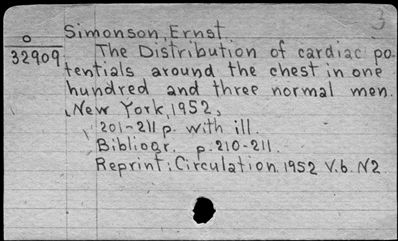 3
Simonson, Ernst
o
32909
The Distribution of cardiac po-
tentials around the chest in one
hundred and three normal men.
New York, 1952,
201-211 p. with ill.
Bibliogr. p. 210-211.
Reprint: Circulation 1952 V.6. N2